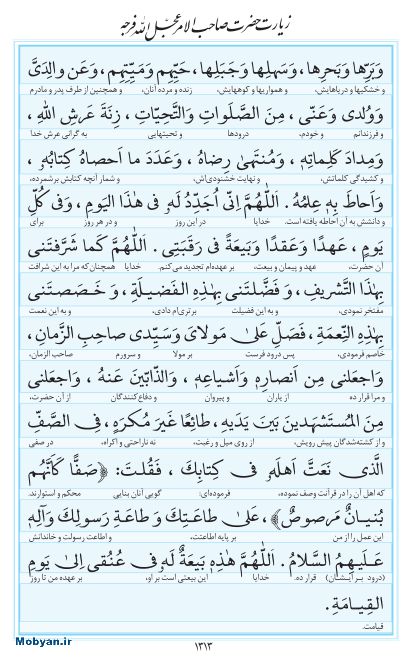 زیارت حضرت صاحب الامر عجل الله فرجه
وَبَرِّها وَبَحرِها، وَسَهلِها وَجَبَلِها، حَیِّهِم وَمَیِّتِهِم، وَعَن والِدَیَّ
و خشکیها و دریاهایش، و همواریها و کوههایش، زنده و مرده آنان، و همچنین از طرف پدر و مادرم
وَوُلدی وَعَنّی، مِنَ الصَّلَواتِ وَالتَّحِیّاتِ، زِنَةَ عَرشِ اللهِ،
و فرزندانم و خودم، درودها و تحیتهایی به گرانی عرش خدا
وَمِدادَ کَلِماتِهِ، وَمُنتَهیٰ رِضاهُ، وَعَدَدَ ما اَحصاهُ کِتابُهُ،
و کشیدگی کلماتش، و نهایت خشنودی‌اش، و شمار آنچه کتابش برشمرده،
وَاَحاطَ بِهِ عِلمُهُ. اَللّٰهُمَّ اِنّی اُجَدِّدُ لَهُ فی هٰذَا الیَومِ، وَفی کُلِّ
و دانشش به آن احاطه یافته است. خدایا در این روز و در هر روز برای
یَومٍ، عَهدًا وَعَقدًا وَبَیعَةً فی رَقَبَتی. اَللّٰهُمَّ کَما شَرَّفتَنی
آن حضرت، عهد و پیمان و بیعت، بر عهده‌ام تجدید می‌کنم. خدایا همچنان‌که مرا به این شرافت
بِهٰذَا التَّشریفِ، وَفَضَّلتَنی بِهٰذِهِ الفَضیلَةِ، وَخَصَصتَنی
مفتخر نمودی، و به این فضیلت برتری‌ام دادی، و به این نعمت
بِهٰذِهِ النِّعمَةِ، فَصَلِّ عَلیٰ مَولایَ وَسَیِّدی صاحِبِ الزَّمانِ،
خاصم فرمودی، پس درود فرست بر مولا و سرورم صاحب الزمان،
وَاجعَلنی مِن اَنصارِهِ وَاَشیاعِهِ، وَالذّابّینَ عَنهُ، وَاجعَلنی
و مرا قرار ده از یاران و پیروان و دفاع‌کنندگان از آن حضرت،
مِنَ المُستَشهَدینَ بَینَ یَدَیهِ، طائِعًا غَیرَ مُکرَهٍ، فِی الصَّفِّ
و از کشته‌شدگان پیش رویش، از روی میل و رغبت، نه ناراحتی و اکراه، در صفی
الَّذی نَعَتَّ اَهلَهُ فی کِتابِکَ، فَقُلتَ: ﴿صَفًّا کَاَنَّهُم
که اهل آن را در قرآنت وصف نموده، فرموده‌ای: گویی آنان بنایی محکم و استوارند.
بُنیانٌ مَرصوصٌ﴾، عَلیٰ طاعَتِکَ وَطاعَةِ رَسولِکَ وَآلِهِ
این عمل را از من بر پایه اطاعتت، و اطاعت رسولت و خاندانش
عَلَیهِمُ السَّلامُ. اَللّٰهُمَّ هٰذِهِ بَیعَةٌ لَهُ فی عُنُقی اِلیٰ یَومِ
(درود بر ایشان) قرار ده. خدایا این بیعتی است بر او، بر عهده من تا روز
القِیامَةِ.
قیامت.
۱۳۱۳
Mobyan.ir